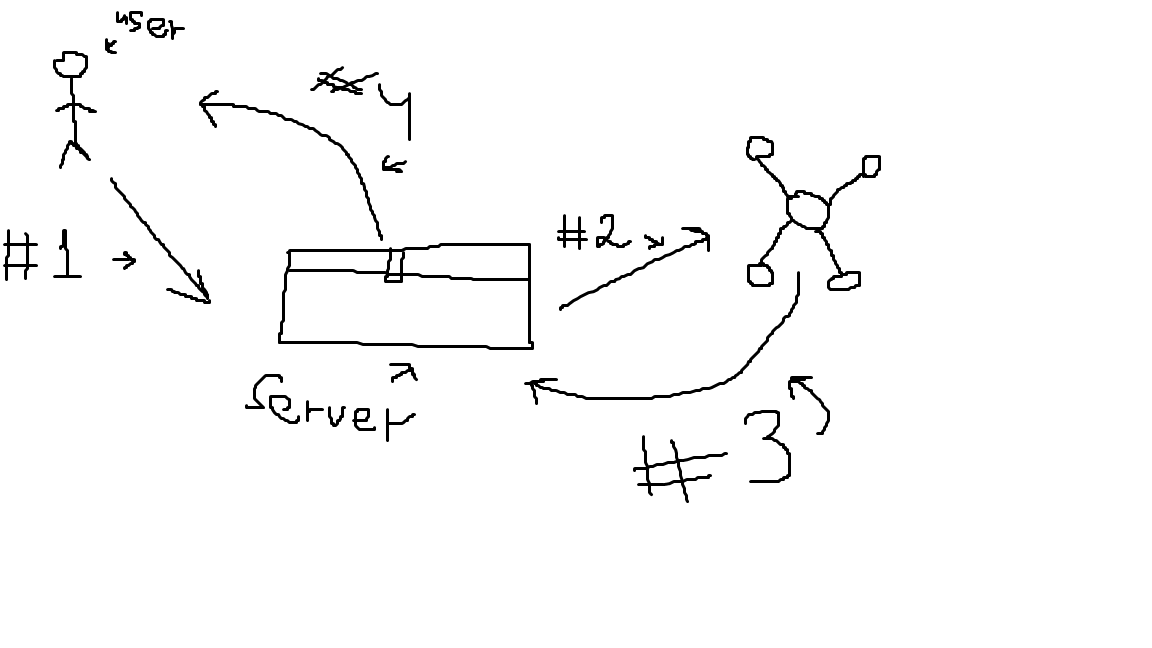 user
#4
#1
#2
server
#3